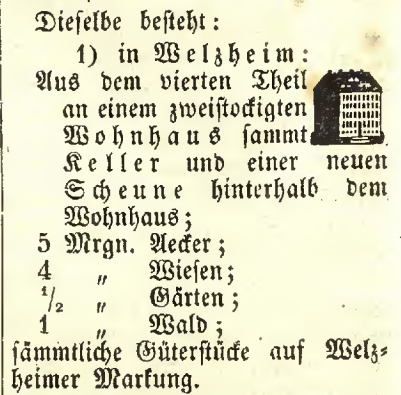 Dieſelbe beſteht:
1) in Welzheim:
Aus dem vierten Theil
an einem zweiſtockigten
Wohnhaus ſammt
Keller und einer neuen
Scheune hinterhalb dem
Wohnhaus;
5 Mrgn. Aecker;
4 „ Wieſen;
½ „ Gärten;
1 „ Wald;
ſämmtliche Güterſtücke auf Welz⸗
heimer Markung.